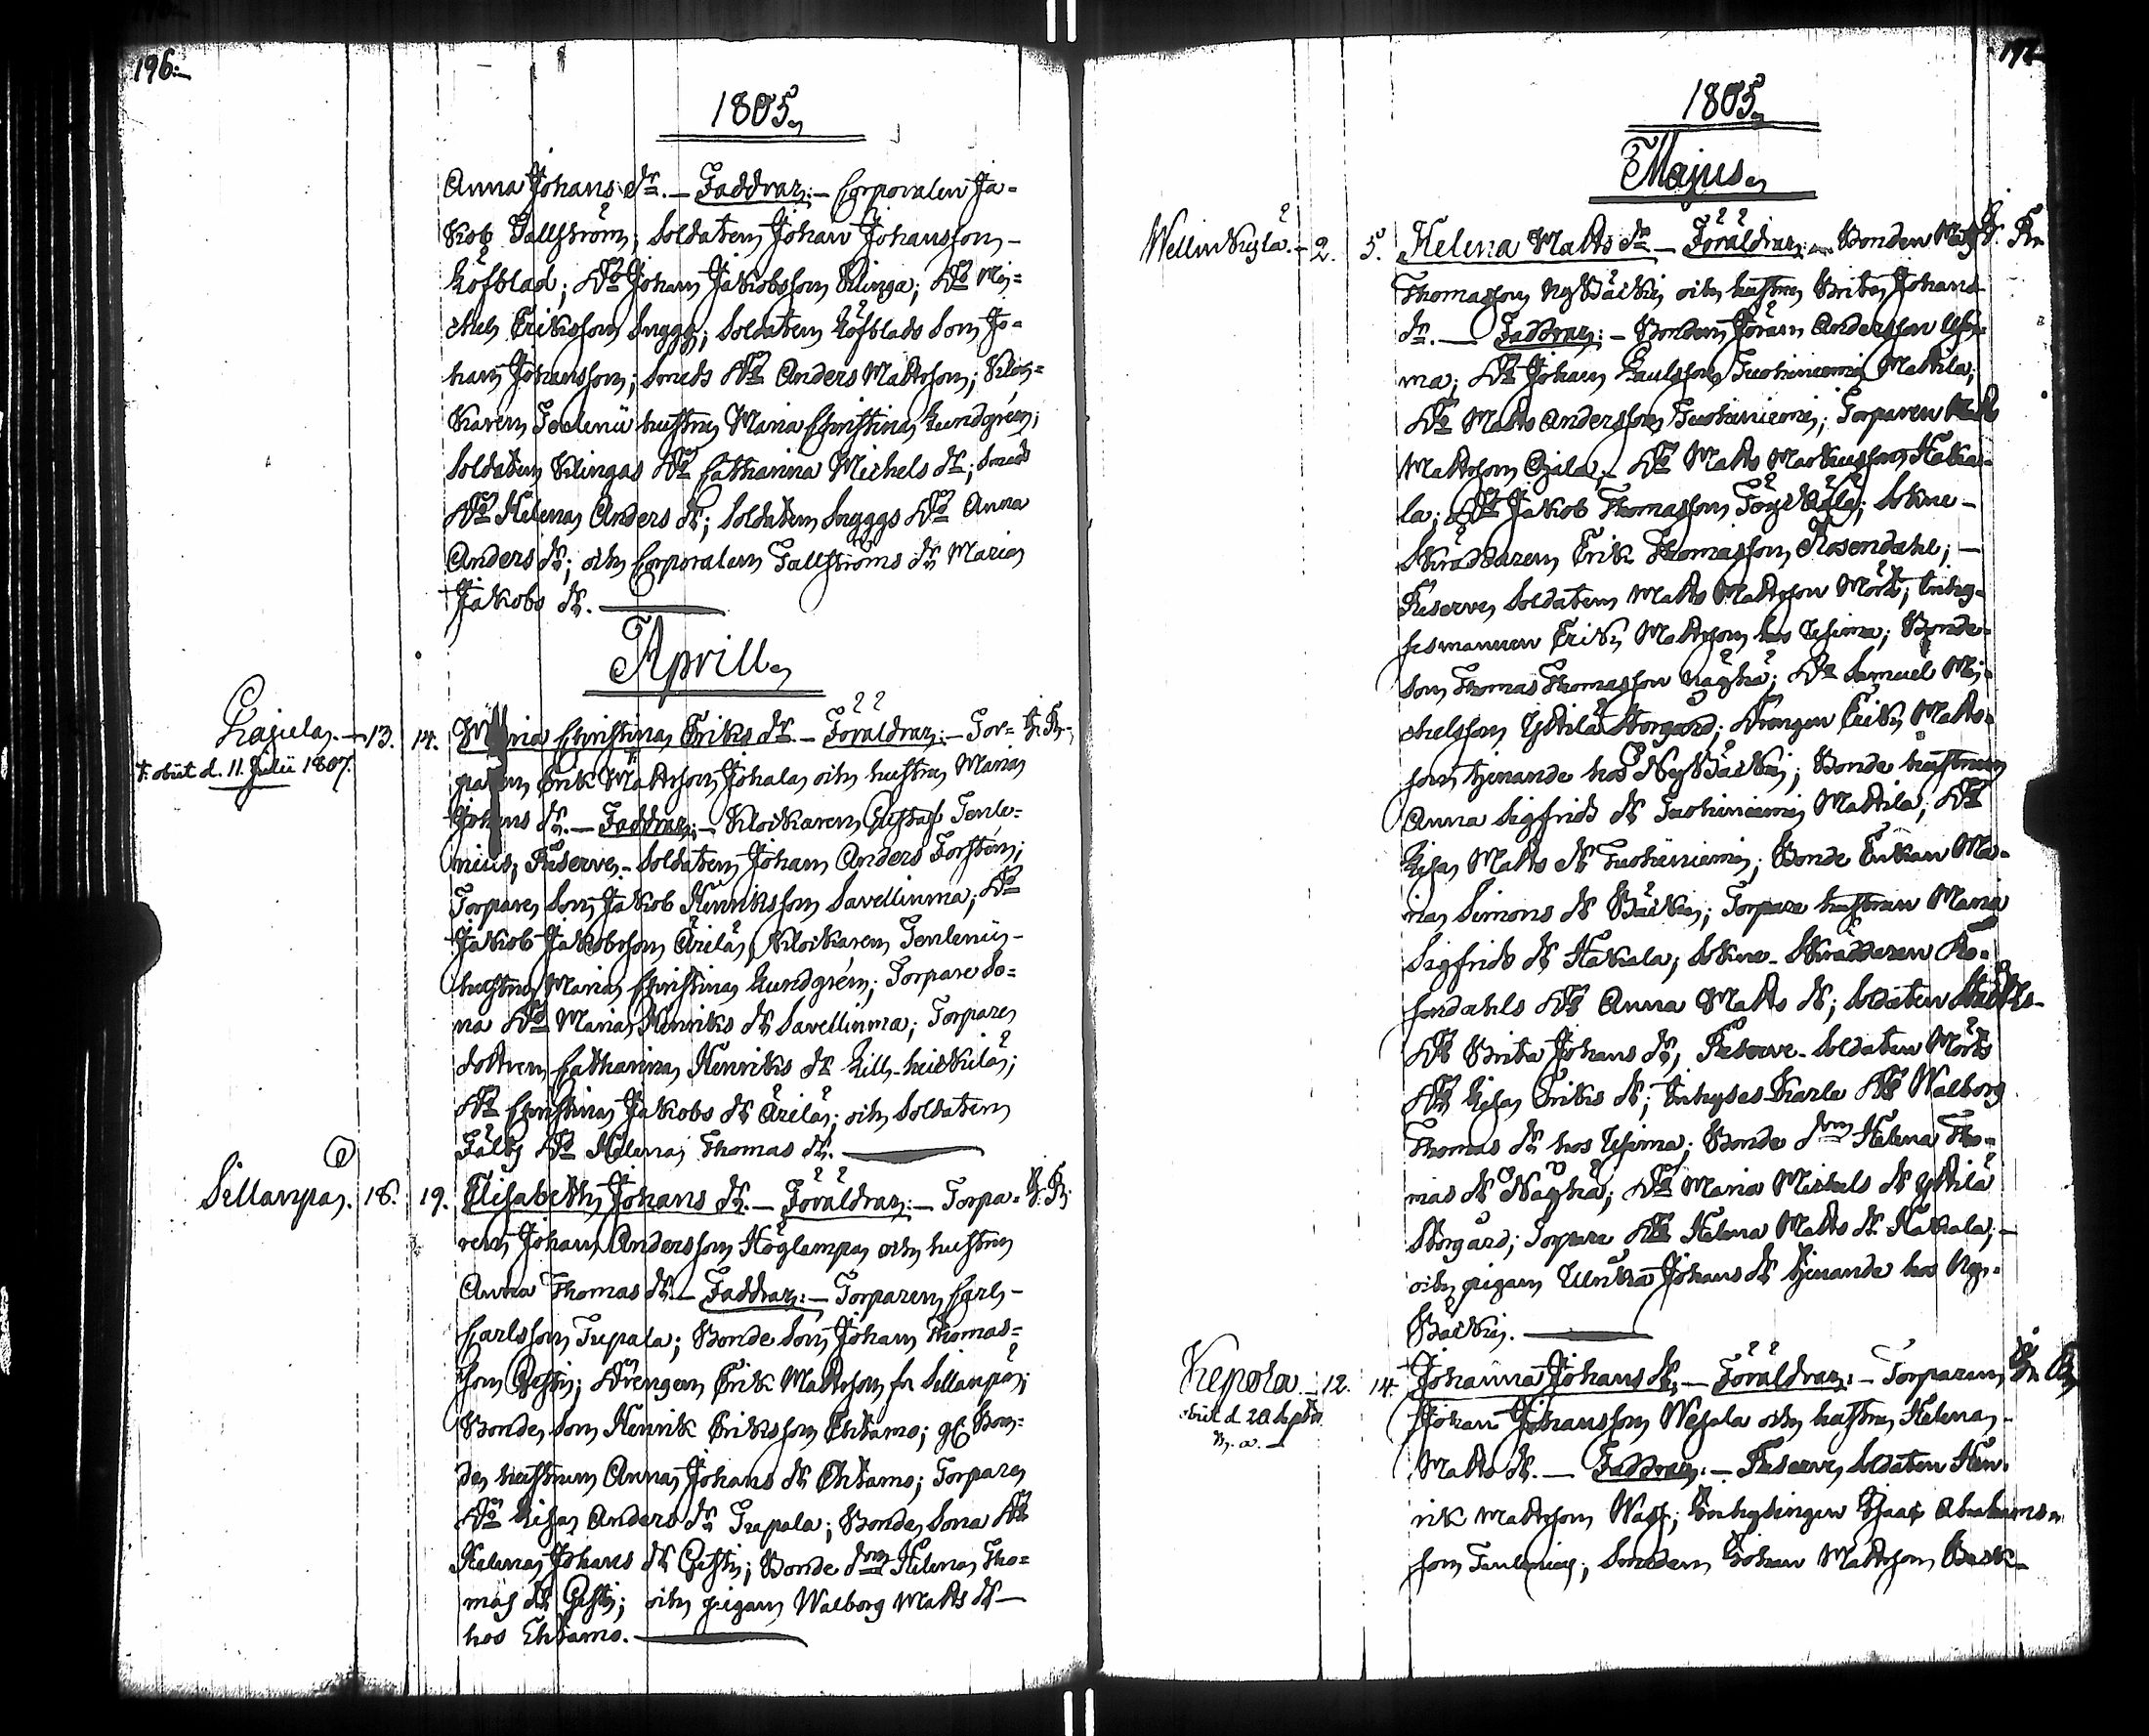 196.
1805.
Anna Johans dr. — Faddrar: — Corporalen Ja=
kob Tallström; Soldaten Johan Johansson —
Löfblad; Do Johan Jakobsson Klinga; Do Mi=
chel Eriksson Snygg; Soldaten Löfblads Son Jo=
han Johansson; Smeds Do Anders Mattsson; Kloc=
karen Tenlenii hustru Maria Christina Lundgrén;
Soldaten Klingas Do Catharina Michels dr; Smeds
Do Helena Anders dr; Soldaten Snyggs Do Anna
Anders dr; och Corporalen Tallströms dr Maria
Jakobs dr.
Aprill
Lajula. — 13. 14. Maria Christina Eriks dr. — Föräldrar: — Tor=
† obiit d. 11. Julii 1807.
paren Erik Mattsson Johala och hustru Maria
Johans dr. — Faddrar: — Klockaren Gustaf Tenle=
nius; Reserve-Soldaten Johan Anders Forstén;
Torpare Son Jakob Henriksson Savellinma; Do
Jakob Jakobsson Ärilä; Klockaren Tenlenii —
hustru Maria Christina Lundgrén; Torpare So=
na Do Maria Henriks dr Savellinma; Torpare
dottren Catharina Henriks dr Lill-heickilä;
Do Christina Jakobs dr Ärilä; och Soldaten
Fälts Do Helena Thomas dr.
Sillanpä. 18. 19. Elisabeth Johans dr. — Föräldrar: — Torpa=
ren Johan Andersson Höglampa och hustru
Anna Thomas dr. — Faddrar: — Torparen Carl —
Carlsson Tupala; Bonde Son Johan Thomas=
son Gesti; Drengen Erik Mattsson fr Sillanpä;
Bonde Son Henrik Eriksson Ehtamo; gl Bon=
de hustrun Anna Johans dr Ehtamo; Torpare
Do Lisa Anders dr Tupala; Bonde Sona Do
Helena Johans dr Gesti; Bonde dm Helena Tho=
mas dr Gesti; och pigan Walborg Matts dr —
hos Ehtamo.
1805.
Majus
2. 5. Helena Matts dr — Föräldrar: — Bonden
Thomasson NyBäcki och hustru Brita Johans
dr. — Faddrar: — Bonden Jöran Andersson
ma; Do Johan Paulsson Tuohiniemi Mattila;
Do Matts Andersson Tuohiniemi; Torparen
Mattsson Ojala; Do Matts Markusson Haka=
la; Do Jakob Thomasson; Sokne —
Skräddaren Erik Thomasson Rosendahl; —
Reserve Soldaten Matts Mattsson Mört; Inhy=
sesmannen Erik Mattsson hos Uhima; Bonde
Son Thomas Thomasson Näyhä; Do Samuel Mi=
chelsson Yttilä Storgård; Drengen Erik Matts=
son tjenande hos NyBäcki; Bonde hustrun
Anna Sigfrids dr Tuohiniemi Mattila; Do
Lisa Matts dr Tuohiniemi; Bonde Enkan Ma=
ria Simons dr Bäcki; Torpare hustrun Maria
Sigfrids dr Hakala; Sokne-Skräddaren Ro=
sendahls Do Anna Matts dr; Soldaten
Do Brita Johans dr; Reserve-Soldaten Mörts
Do Lisa Eriks dr; Inhyses Karls Do Walborg
Thomas dr hos Uhima; Bonde dm Helena Tho=
mas dr Näyhä; Do Maria Michels dr Yttilä
Storgård; Torpare Do Helena Matts dr Hakala; —
och pigan Ulrika Johans dr tjenande hos Ny=
Bäcki.
Kepola. — 12. 14. Johanna Johans dr — Föräldrar: — Torparen
obiit d. 20 Septbr
Johan Johansson Wesala och hustru Helena
Matts dr. — Faddrar: — Reserve Soldaten Hen=
rik Mattsson Wass; Inhysingen Isaac Abrahams=
son; Smeden Johan Mattsson